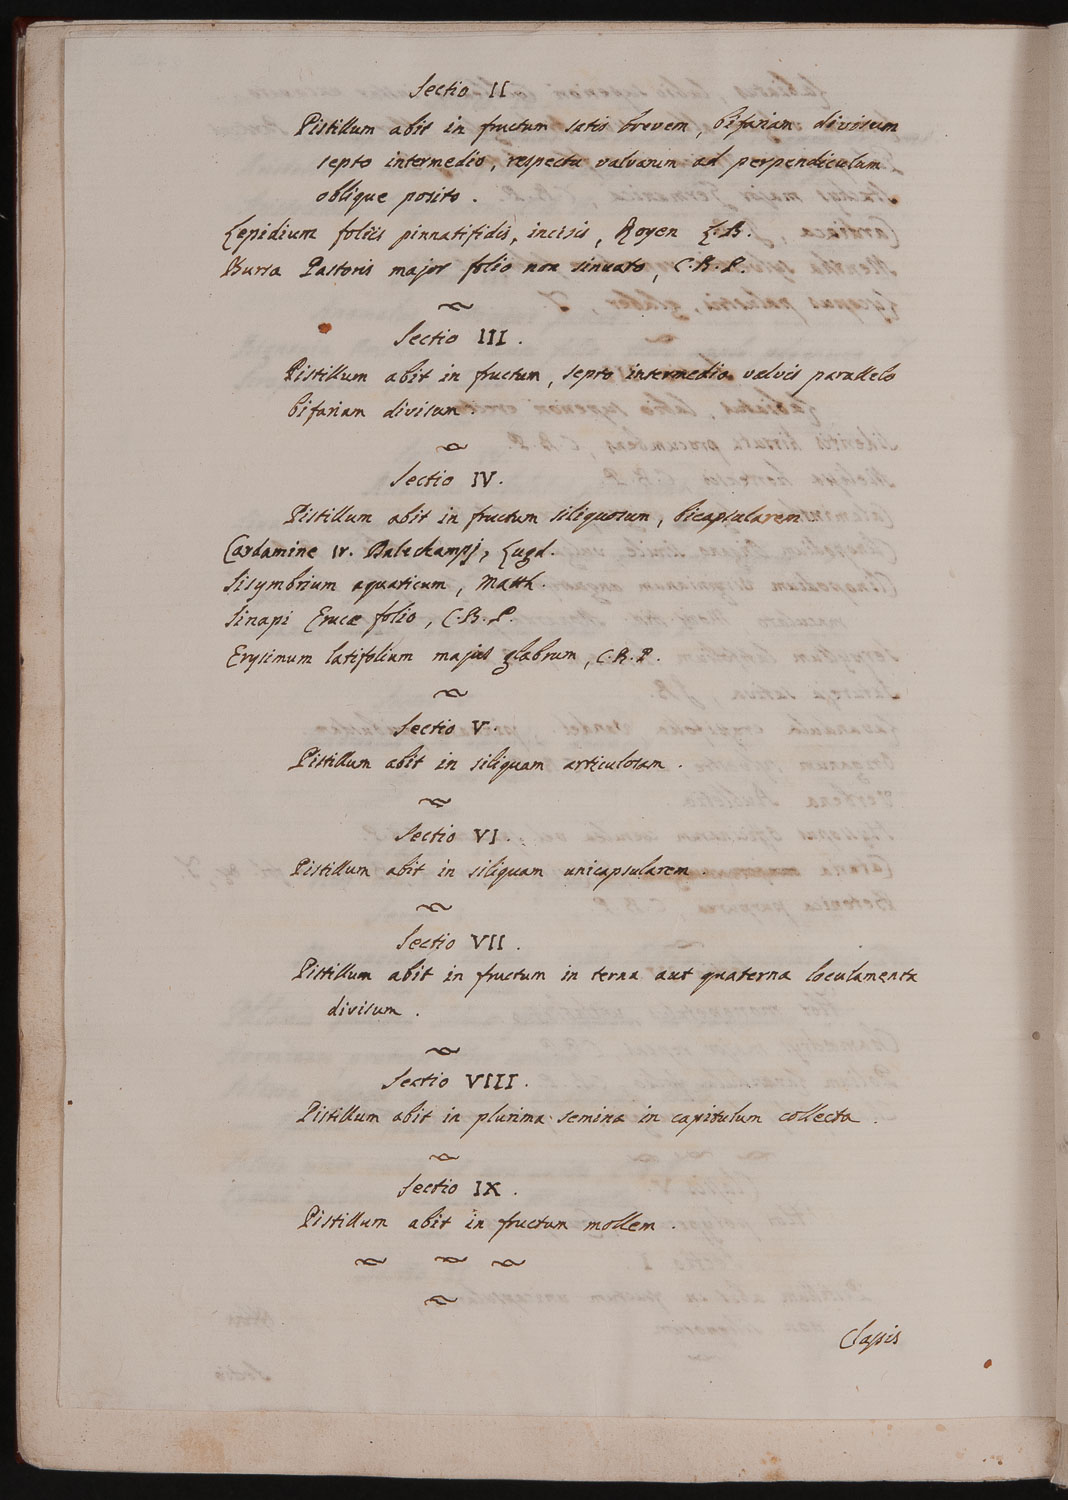 Sectio II
Pistillum abit in fructum satis brevem, bifariam divisum
septo intermedio, respectu valvarum ad perpendiculum
oblique posito.
Lepidium foliis pinnatifidis, incisis, Royen L.B.
Bursa Pastoris major folio non sinuato, C.B.P.
Sectio III.
Pistillum abit in fructum, septo intermedio valvis parallelo
bifariam divisum.
Sectio IV.
Pistillum abit in fructum siliquosum, bicapsularem
Cardamine Lugd.
Sisymbrium aquaticum, Matth.
Sinapi Erucæ folio, C.B.P.
Erysimum latifolium majus glabrum, C.B.P.
Sectio V.
Pistillum abit in siliquam articulosam.
Sectio VI.
Pistillum abit in siliquam unicapsularem.
Sectio VII.
Pistillum abit in fructum in terna aut quaterna loculamenta
divisum.
Sectio VIII.
Pistillum abit in plurima semina in capitulum collecta.
Sectio IX.
Pistillum abit in fructum mollem.
Classis